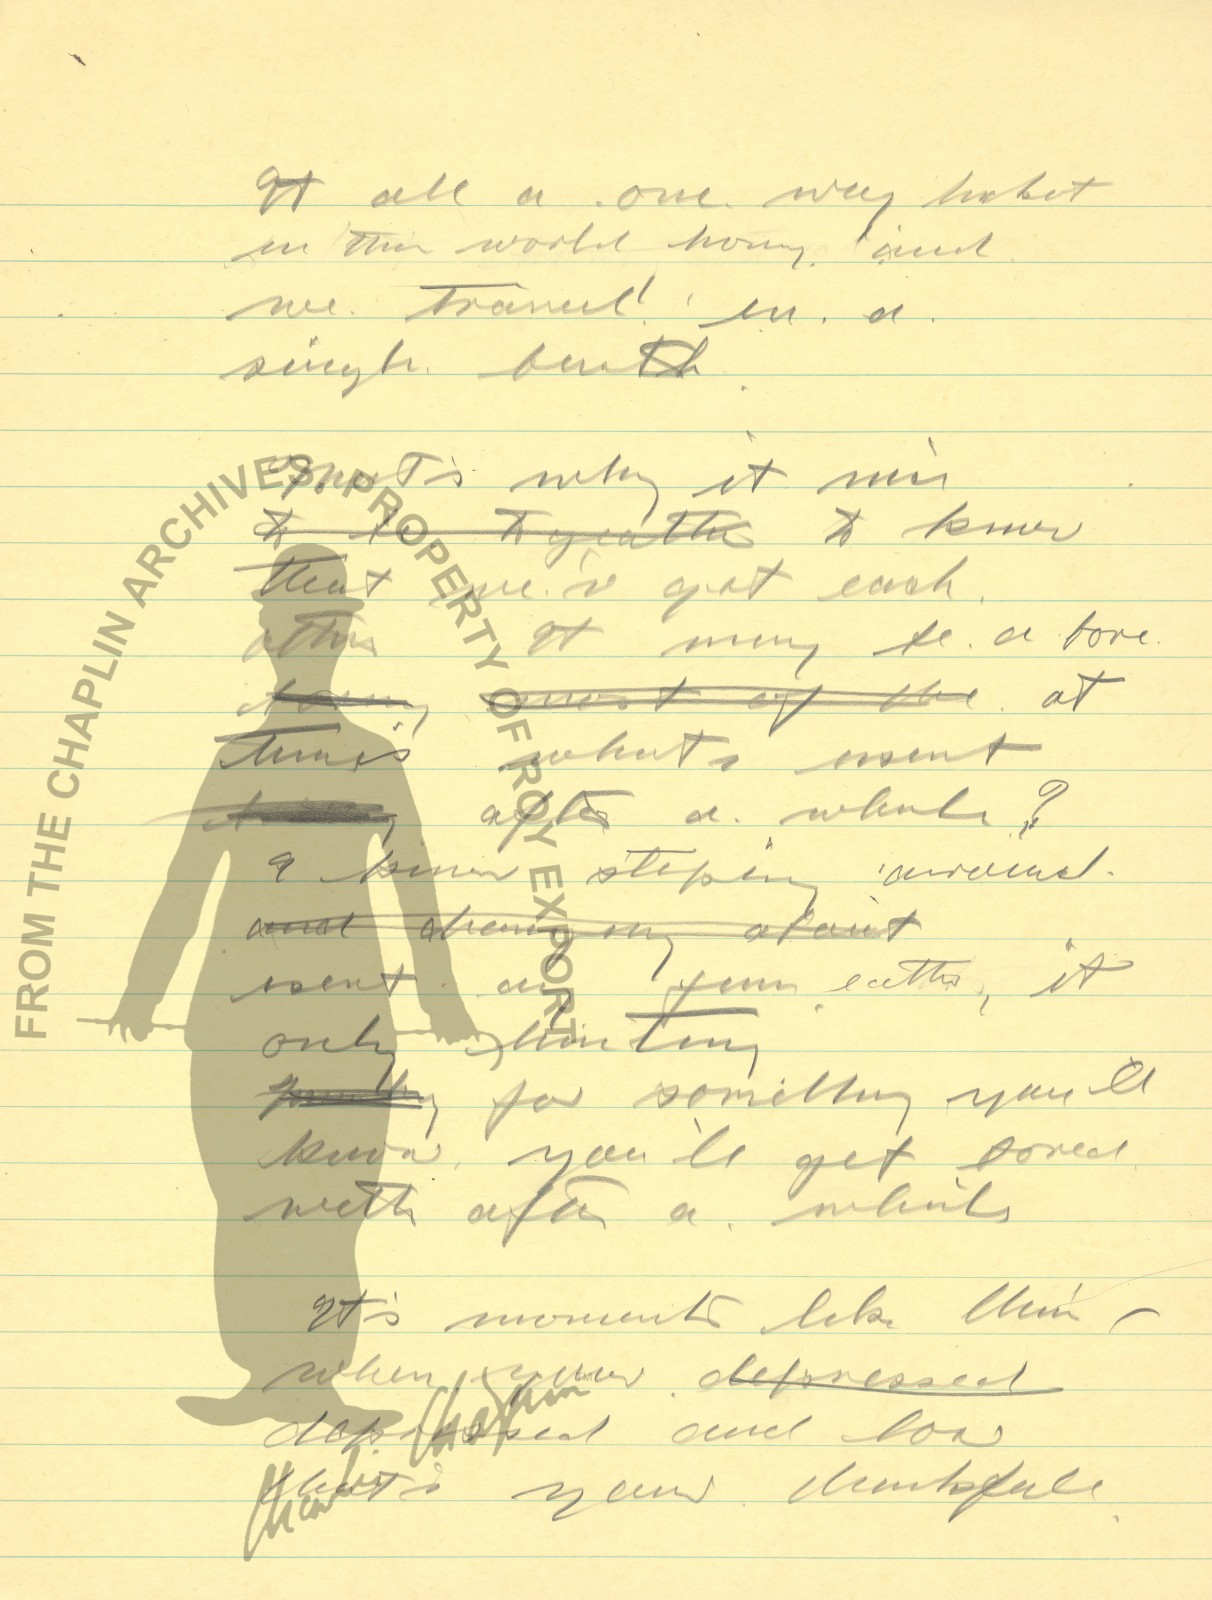 It all a one way ticket
in this world honey and
we travel in a
single berth.
that's why it nice
to be together to know
that we'v got each
other It may be a bore
most of the at
times what's isent
after a while?
I know steping around
and changing about
isent any fun eather, it
only hunting
for something you'll
know you'll get bored
with after a while
It's moments like this –
when your depressed
depressed and low
that's your thankfull
FROM THE CHAPLIN ARCHIVES. PROPERTY OF ROY EXPORT
Charlie Chaplin